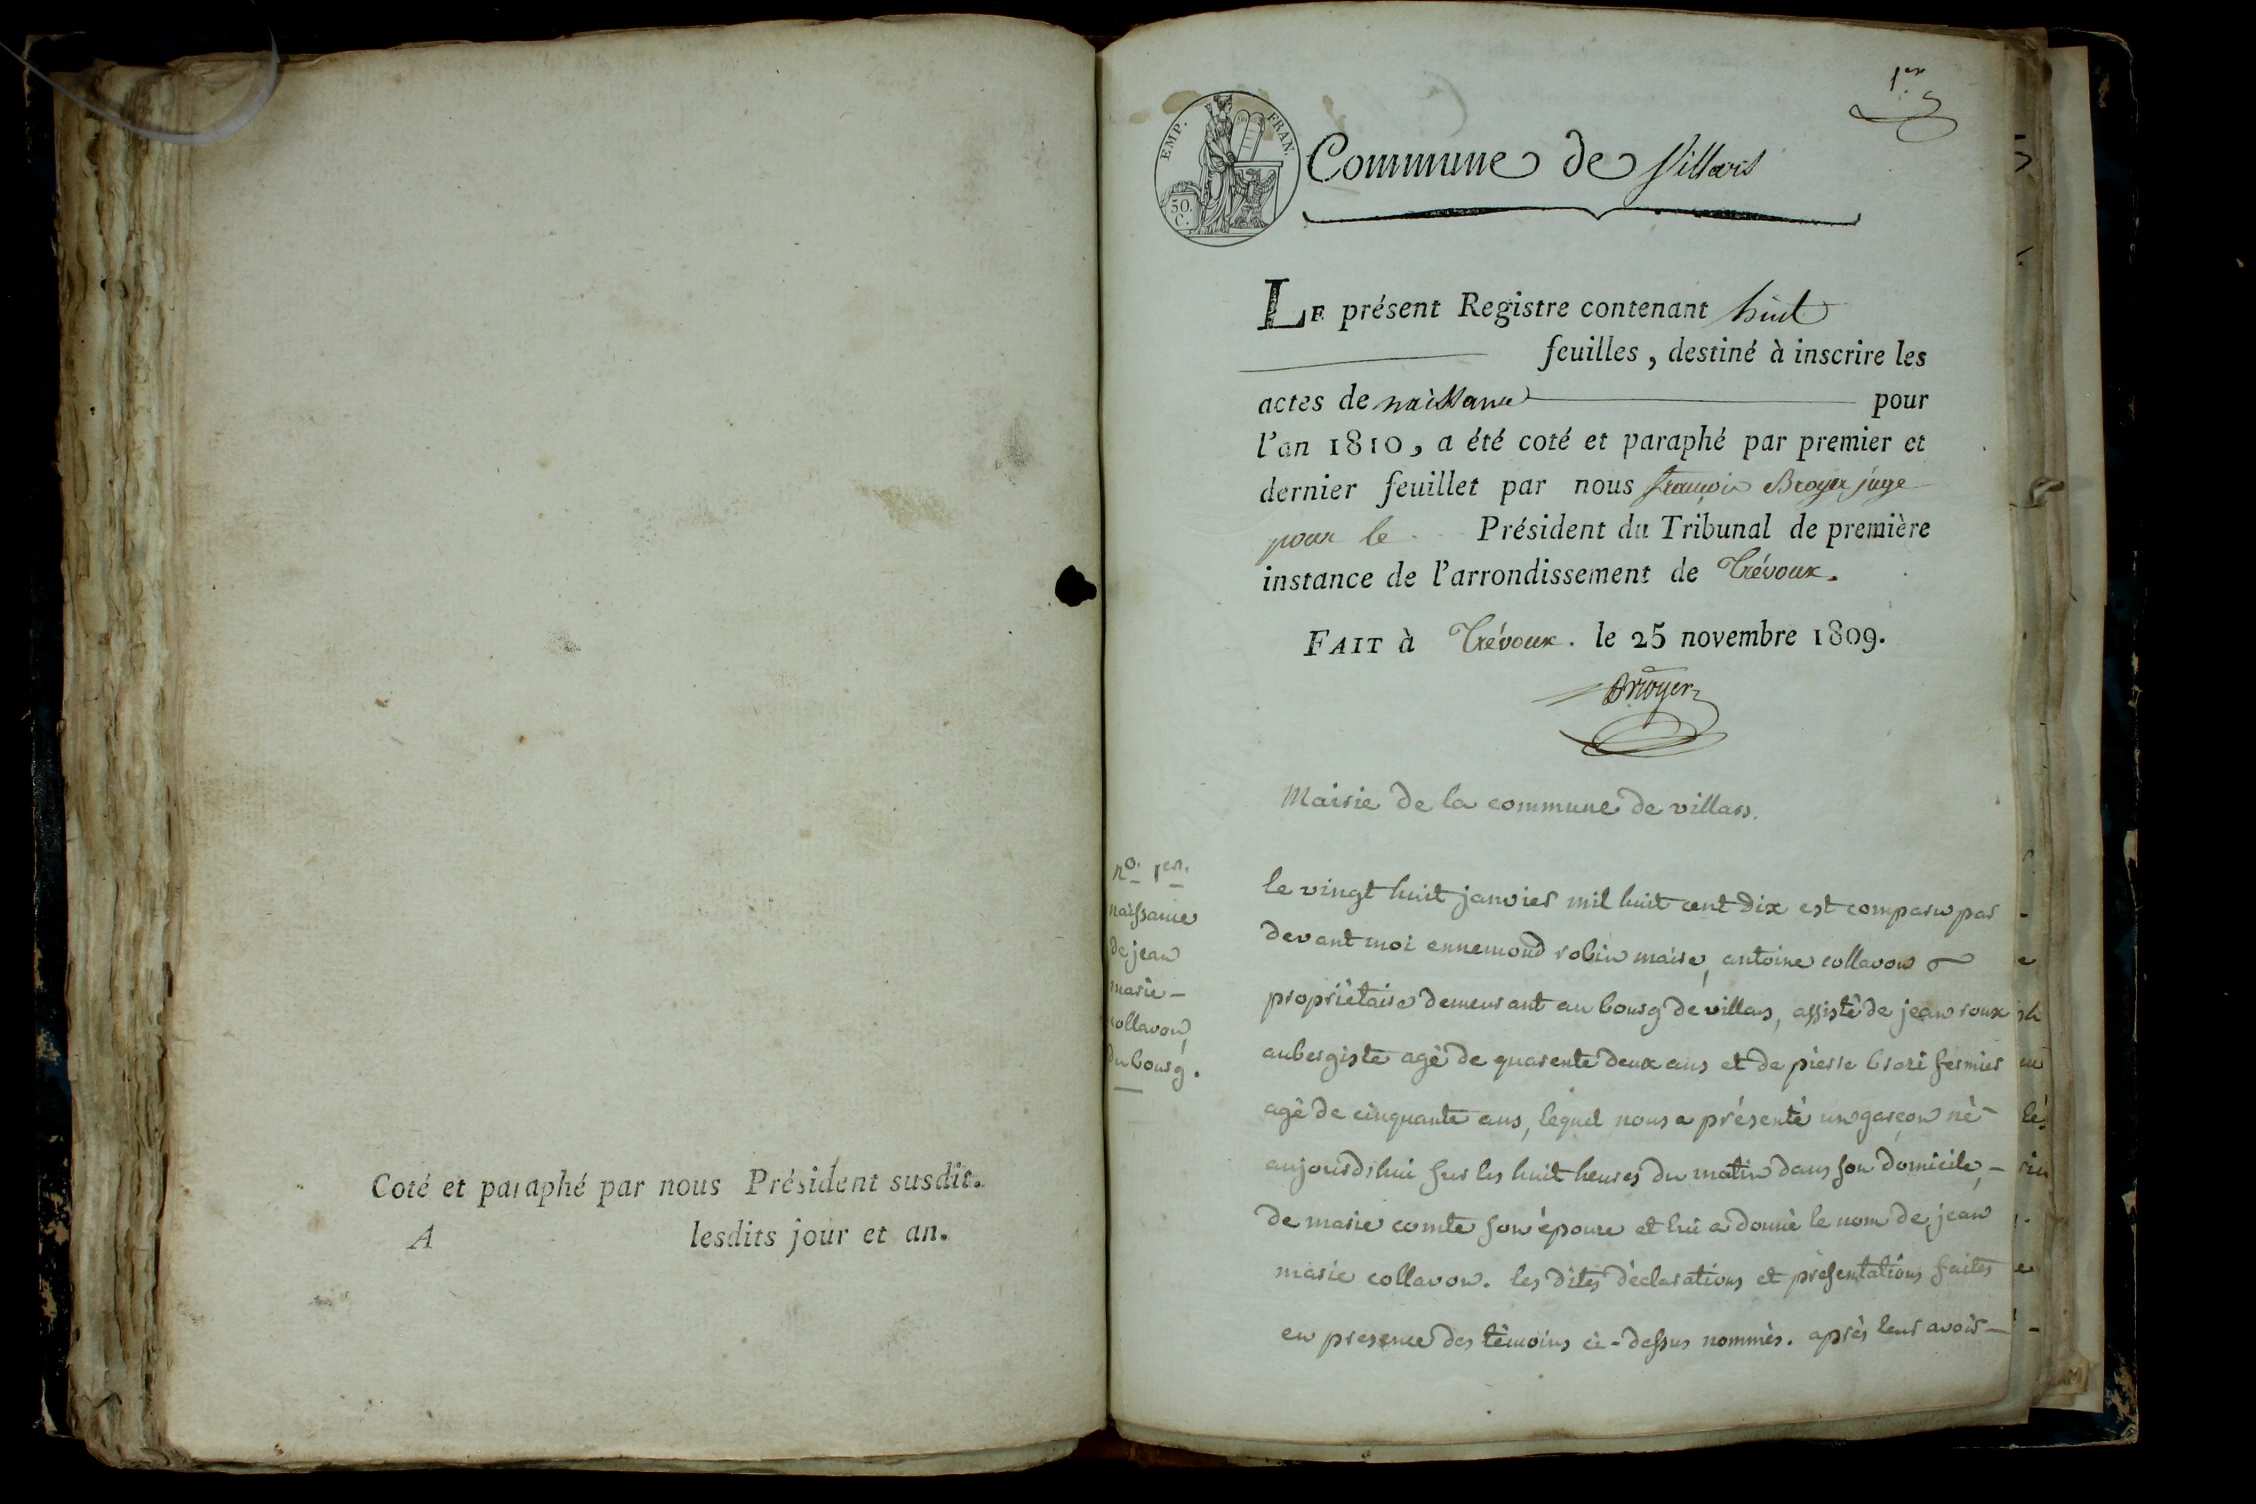 Coté et paraphé par nous Président susdit.
A lesdits jour et an.
1er
EMP. FRAN.
50.
C.
Commune de Villars
LE présent Registre contenant huit
feuilles, destiné à inscrire les
actes de naissance pour
l'an 1810, a été coté et paraphé par premier et
dernier feuillet par nous françois Broyer juge
pour le Président du Tribunal de première
instance de l'arrondissement de Trévoux.
FAIT à Trévoux. le 25 novembre 1809.
Broyer
Mairie de la commune de villars.
no. 1er.
naissance
de jean
marie -
collavon,
du bourg.
le vingt huit janvier mil huit cent dix est comparu par
devant moi ennemond robin maire, antoine collavon
propriètaire demeurant au bourg de villars, assistè de jean roux
aubergiste agè de quarente deux ans et de pierre brozi fermier
agè de cinquante ans, lequel nous a présenté un garçon nè -
aujourd'hui sur les huit heures du matin dans son domicile, -
de marie comte son épouse et lui a donnè le nom de jean
marie collavon. les dites dèclarations et prèsentations faites
en presence des tèmoins ci-dessus nommès. après leur avoir -